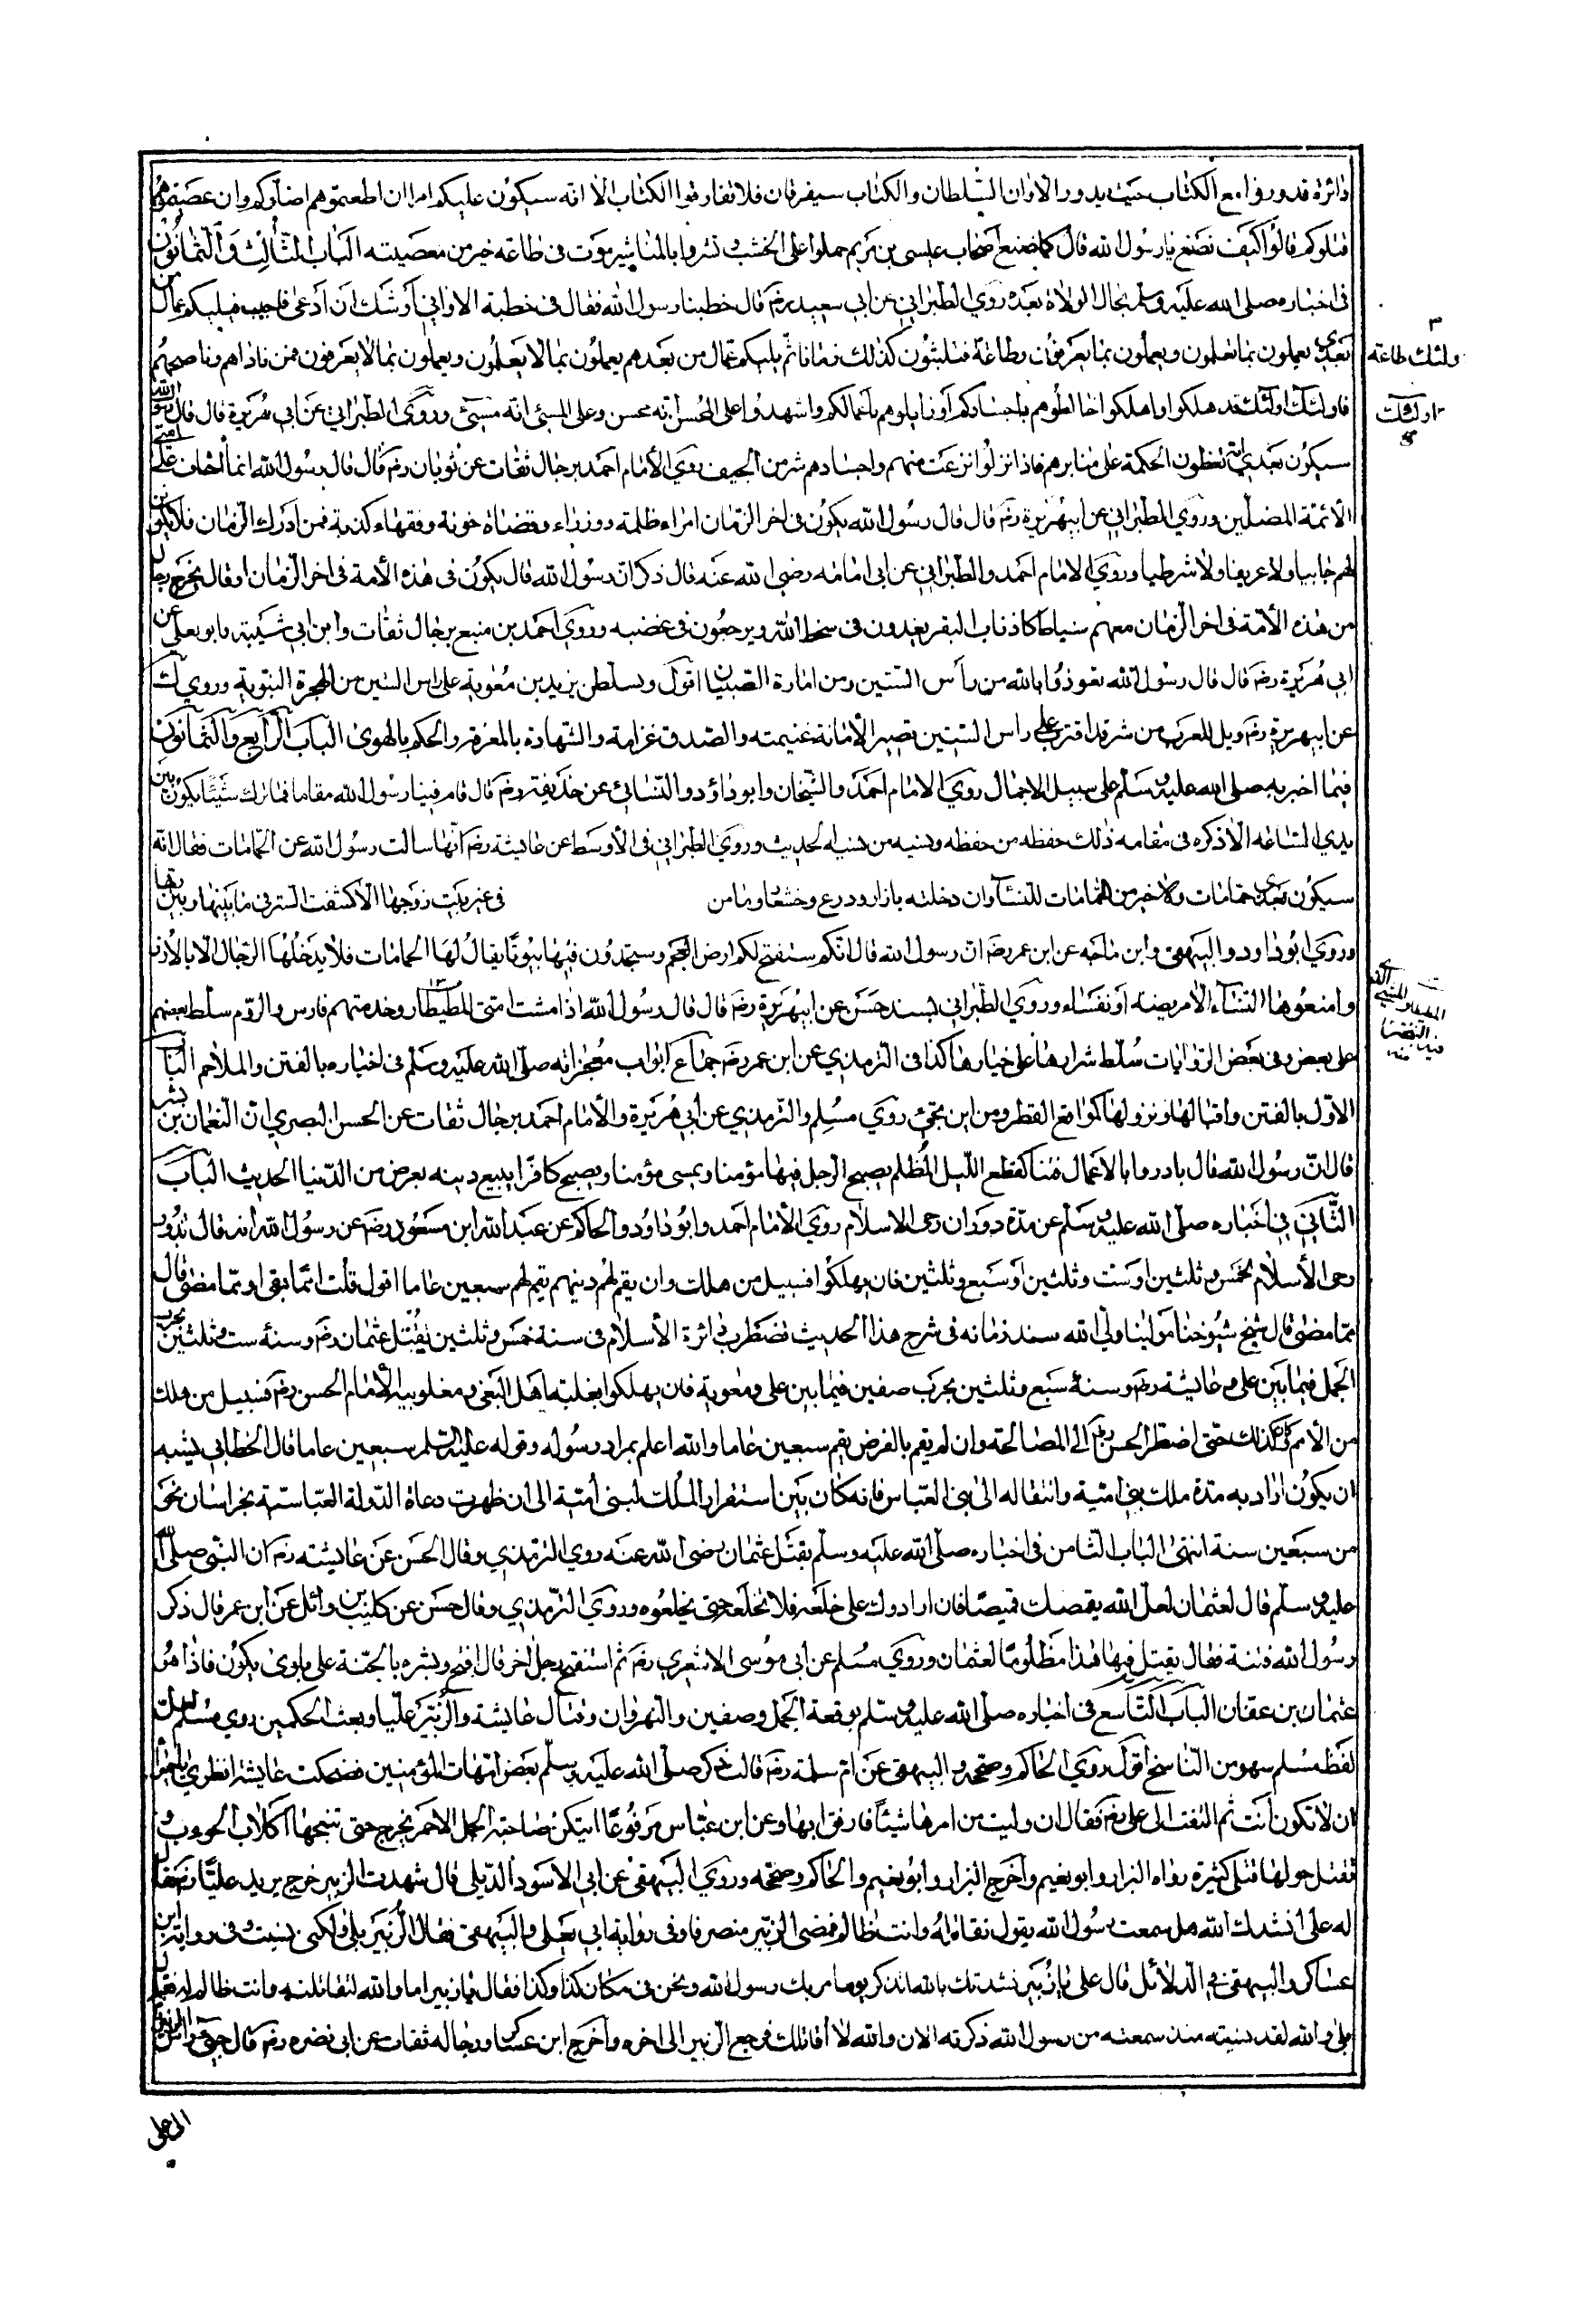 دائرة فدوروا مع الكتاب حيث يدور الا وان السلطان والكتاب سيفرقان فلا تفارقوا الكتاب الا انه سيكون عليكم امرا ان اطعتموهم اضلوكم وان عصيتموهم
قتلوكم قالوا كيف نصنع يا رسول الله قال كما صنع اصحاب عيسى بن مريم حملوا على الخشب ونشروا بالمناشير موت فى طاعة خير من معصيته الباب الثالث والثمانون
فى اخباره صلى الله عليه وسلم بحال الولاة بعده روى الطبرانى عن ابى سعيد رضه قال خطبنا رسول الله فقال فى خطبة الا وانى اوشك ان ادعى فاجيب فيليكم عمال من
بعدى يعملون بما تعلمون ويعملون بما يعرفون وطاعة فتلبثون كذلك زمانا ثم يليكم عمال من بعدهم يعملون بما لا يعلمون ويعملون بما لا يعرفون فمن قادهم وناصحهم
ولئك طاعة
فاولئك اولئك قد هلكوا واهلكوا خالطوهم باجسادكم وزايلوهم باعمالكم واشهدوا على المحسن انه محسن وعلى المسئ انه مسيئ وروى الطبرانى عن ابى هريرة قال قال رسول الله
سيكون بعدى ائمة يعظون الحكمة على منابرهم فاذا نزلوا نزعت منهم واجسادهم شر من الجيف روى الامام احمد برجال ثقات عن ثوبان رضه قال قال رسول الله انما اخاف على امتى
الائمة المضلين وروى الطبرانى عن ابيهريرة رضه قال قال رسول الله يكون فى اخر الزمان امراء ظلمة ووزراء وقضاة خونة وفقهاء كذبة فمن ادرك الزمان فلا يكونن
لهم جابيا ولا عريفا ولا شرطيا وروى الامام احمد والطبرانى عن ابى امامه رضى الله عنه قال ذكر ان رسول الله قال يكون فى هذه الامة فى اخر الزمان او قال يخرج رجال
من هذه الامة فى اخر الزمان معهم سياط كاذناب البقر يغدون فى سخط الله ويرجعون فى غضبه وروى احمد بن منيع برجال ثقات وابن ابى شيبة وابو يعلى عن
ابى هريرة رضه قال قال رسول الله تعوذوا بالله من رأس الستين ومن امارة الصبيان اقول وتسلطن يزيد بن معوية على راس الستين من الهجرة النبوية وروى ك
عن ابيهريرة رضه ويل للعرب من شر قد اقترب على راس الستين تصير الامانة غنيمته والصدق غرامة والشهادة بالمعرفة والحكم بالهوى الباب الرابع والثمانون
فيما اخبر به صلى الله عليه وسلم على سبيل الاجمال روى الامام احمد والشيخان وابو داؤد والنسائى عن حذيفة رضه قال قام فينا رسول الله مقاما فما ترك شيئا يكون بين
يدى الساعة الا ذكره فى مقامه ذلك حفظه من حفظه ونسيه من نسيه الحديث وروى الطبرانى فى الاوسط عن عايشة رضه انها سالت رسول الله عن الحمامات فقال انه
سيكون بعدى حمامات ولا خير من الحمامات للنساء وان دخلته بازار ودرع وخمار وما من فى غير بيت زوجها الا كشفت الستر فى ما بينها وبين ربها
وروى ابو داود والبيهقى وابن ماجه عن ابن عمر رضه ان رسول الله قال انكم ستفتح لكم ارض العجم وستجدون فيها بيوتا يقال لها الحمامات فلا يدخلها الرجال الا بالازر
وامنعوها النساء الا مريضة او نفساء وروى الطبرانى بسند حسن عن ابيهريرة رضه قال قال رسول الله اذا مشت امتى المطيطا وخدمتهم فارس والروم سلط بعضهم
على بعض وفى بعض الروايات سلط شرارها على خيارها كذا فى الترمذى عن ابن عمر رضه جماع ابواب معجزاته صلى الله عليه وسلم فى اخباره بالفتن والملاحم الباب
الاول بالفتن واقبالها ونزولها كمواقع القطر ومن اين تجئ روى مسلم والترمذى عن ابى هريرة والامام احمد برجال ثقات عن الحسن البصرى ان النعمان بن بشير
قال ان رسول الله قال بادروا بالاعمال فتنا كقطع الليل المظلم يصبح الرجل فيها مؤمنا ويمسى مؤمنا ويصبح كافرا يبيع دينه بعرض من الدنيا الحديث الباب
الثانى فى اخباره صلى الله عليه وسلم عن مدة دوران رحى الاسلام روى الامام احمد وابو داود والحاكم عن عبد الله ابن مسعود رضه عن رسول الله انه قال تدور
رحى الاسلام لخمس وثلثين او ست وثلثين او سبع وثلثين فان يهلكوا فسبيل من هلك وان يقم لهم دينهم يقم لهم سبعين عاما اقول قلت امما بقى او مما مضى قال
مما مضى قال شيخ شيوخنا مولينا ولى الله سند زمانه فى شرح هذا الحديث تضطرب دائرة الاسلام فى سنة خمس وثلثين بقتل عثمان رضه وسنة ست وثلثين بحرب
الجمل فيما بين على وعايشة رضه وسنة سبع وثلثين بحرب صفين فيما بين على ومعوية فان يهلكوا بغلبة اهل البغى ومغلوبية الامام الحسن رضه فسبيل من هلك
من الامم كذلك حتى اضطر الحسن رضه الى المصالحة وان لم يقم بالفرض يقم سبعين عاما والله اعلم بمراد رسوله وقوله عليه السلم سبعين عاما قال الخطابى يشبه
ان يكون اراد به مدة ملك بنى امية وانتقاله الى بنى العباس فانه كان بين استقرار الملك لبنى امية الى ان ظهرت دعاة الدولة العباسية بخراسان نحو
من سبعين سنة انتهى الباب الثامن فى اخباره صلى الله عليه وسلم بقتل عثمان رضى الله عنه روى الترمذى وقال الحسن عن عايشته رضه ان النبى صلى الله
عليه وسلم قال لعثمان لعل الله يقمصك قميصا فان ارادوك على خلعه فلا تخلعه حتى يخلعوه وروى الترمذى وقال حسن عن كليب بن وائل عن ابن عمر قال ذكر
رسول الله فتنة فقال يقتل فيها هذا مظلوما لعثمان وروى مسلم عن ابى موسى الاشعرى رضه ثم استفتح رجل اخر قال افتح وبشره بالجنة على بلوى يكون فاذا هو
عثمان بن عفان الباب التاسع فى اخباره صلى الله عليه وسلم بوقعة الجمل وصفين والنهروان وقتال عايشة والزبير عليا وبعث الحكمين روى مسلم لعل
لفظ مسلم سهو من الناسخ اقول روى الحاكم وصححه والبيهقى عن ام سلمة رضه قالت ذكر صلى الله عليه وسلم بعض امهات المؤمنين فضحكت عايشة انظرى يا حميرا
ان لا تكون انت ثم التفت الى على رضه فقال ان وليت من امرها شيئا فارفق بها وعن ابن عباس مرفوعا ايتكن صاحبة الجمل الاحمر تخرج حتى تنبحها كلاب الحووب و
تقتل حولها قتلى كثيرة رواه البزار وابو نعيم واخرج البزار وابو نعيم والحاكم وصححه وروى البيهقى عن ابى الاسود الديلى قال شهدت الزبير خرج يريد عليا رضه فقال
له على انشدك الله هل سمعت رسول الله يقول تقاتله وانت ظالم فمضى الزبير منصرفا وفى رواية ابى يعلى والبيهقى فقال الزبير بلى ولكن نسيت وفى رواية ابن
عساكر والبيهقى فى الدلائل قال على يا زبير نشدتك بالله اتذكر يوما مر بك رسول الله ونحن فى مكان كذا وكذا فقال يا زبير اما والله لتقاتلنه وانت ظالم له فقال
بلى والله لقد نسيته منذ سمعته من رسول الله ذكرته الان والله لا اقاتلك فرجع الزبير الى اخره واخرج ابن عساكر ورجاله ثقات عن ابى نضره رضه قال
الى على